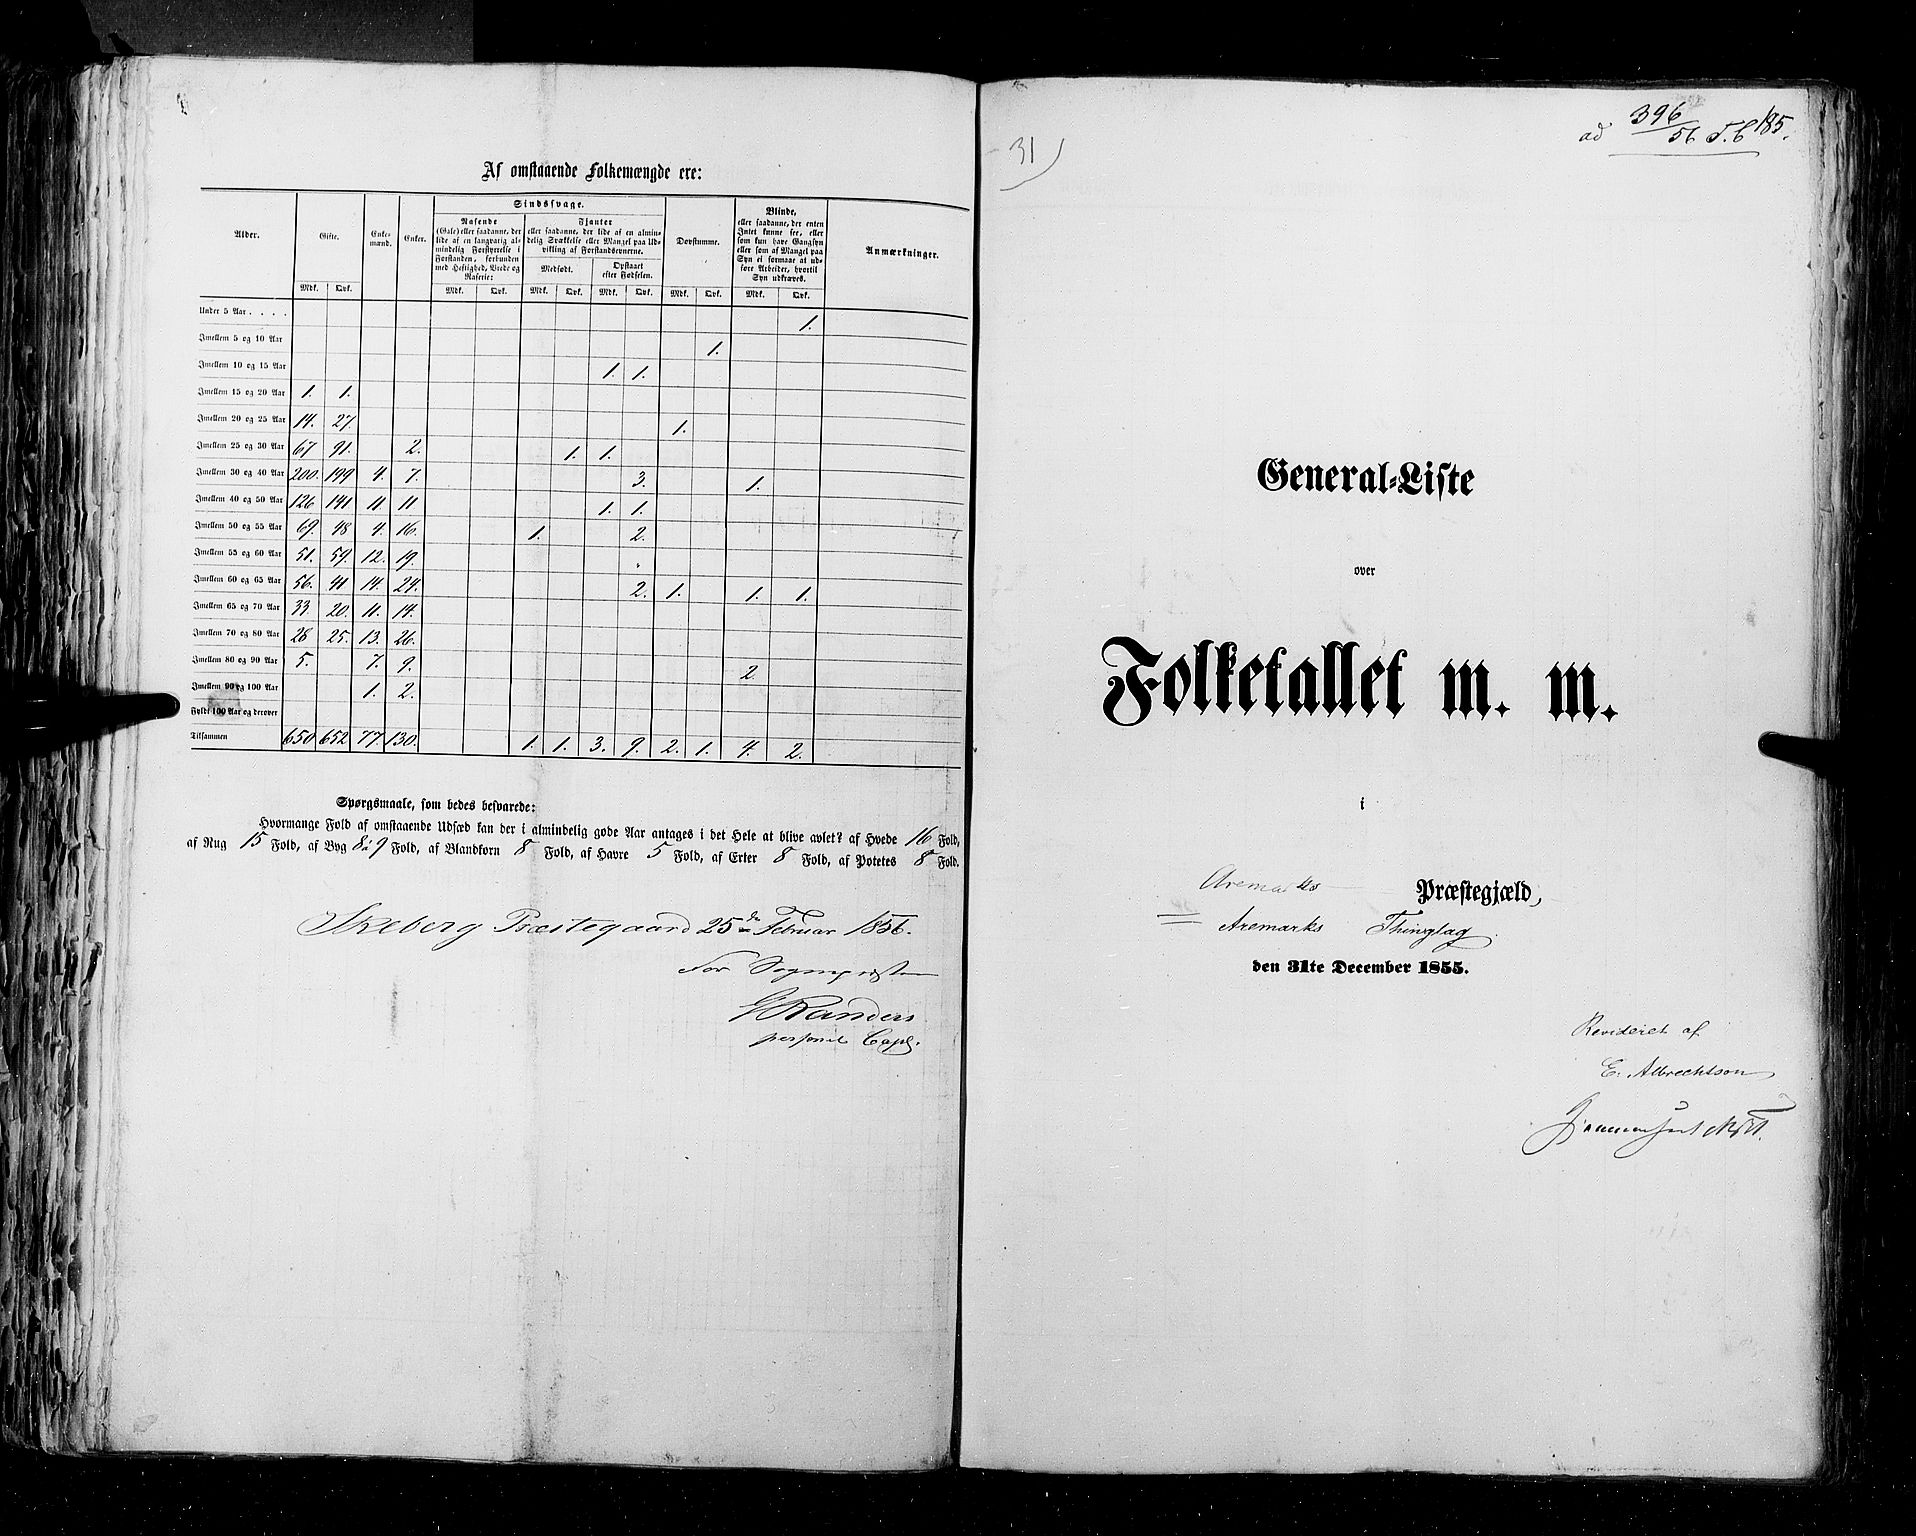 Af omstaaende Folkemængde ere:
Alder. Gifte. Enkemænd. Enker. Sindssvage. Døvstumme. Blinde, eller saadanne, der enten Intet kunne see, eller som kun have Gangsyn eller som af Mangel paa Syn ei formaae at udføre Arbeider, hvortil Syn udkræves. Anmærkninger.
Rasende (Gale) eller saadanne, der lide af en langvarig almindelig Forstyrrelse i Forstanden, forbunden med Heftighed, Vrede og Raserie:
Fjanter eller saadanne, der lide af en almindelig Svækkelse eller Mangel paa Udvikling af Forstandsevnerne.
Medfødt. Opstaaet efter Fødselen.
Mdk. Qvk. Mdk. Qvk. Mdk. Qvk. Mdk. Qvk. Mdk. Qvk. Mdk. Qvk.
Under 5 Aar . . . . 1.
Imellem 5 og 10 Aar 1.
Imellem 10 og 15 Aar 1. 1.
Imellem 15 og 20 Aar 1. 1.
Imellem 20 og 25 Aar 14. 27. 1.
Imellem 25 og 30 Aar 67 91. 2. 1. 1.
Imellem 30 og 40 Aar 200. 199 4. 7. 3. 1.
Imellem 40 og 50 Aar 126 141 11 11 1. 1.
Imellem 50 og 55 Aar 69. 48 4. 16. 1. 2.
Imellem 55 og 60 Aar 51. 59. 12. 19.
Imellem 60 og 65 Aar 56. 41 14. 24. 2. 1. 1. 1.
Imellem 65 og 70 Aar 33 20. 11. 14.
Imellem 70 og 80 Aar 28 25. 13. 26.
Imellem 80 og 90 Aar 5. 7. 9. 2
Imellem 90 og 100 Aar 1. 2.
Fyldt 100 Aar og derover
Tilsammen 650 652 77. 130. 1. 1. 3. 9. 2. 1. 4. 2.
Spørgsmaale, som bedes besvarede:
Hvormange Fold af omstaaende Udsæd kan der i almindelig gode Aar antages i det Hele at blive avlet? af Hvede 16 Fold,
af Rug 15 Fold, af Byg 8 à 9 Fold, af Blandkorn 8 Fold, af Havre 5 Fold, af Erter 8 Fold, af Potetes 8 Fold.
Skeberg Præstegaard 25de Februar 1856.
For Sognepræsten
G Randers
personel Capl.
31
ad 396/56 T.C 185.
General-Liste
over
Folketallet m. m.
i
Aremarks Præstegjæld,
= Aremarks Thinglag
den 31te December 1855.
Revideret af
E. Albrechtson